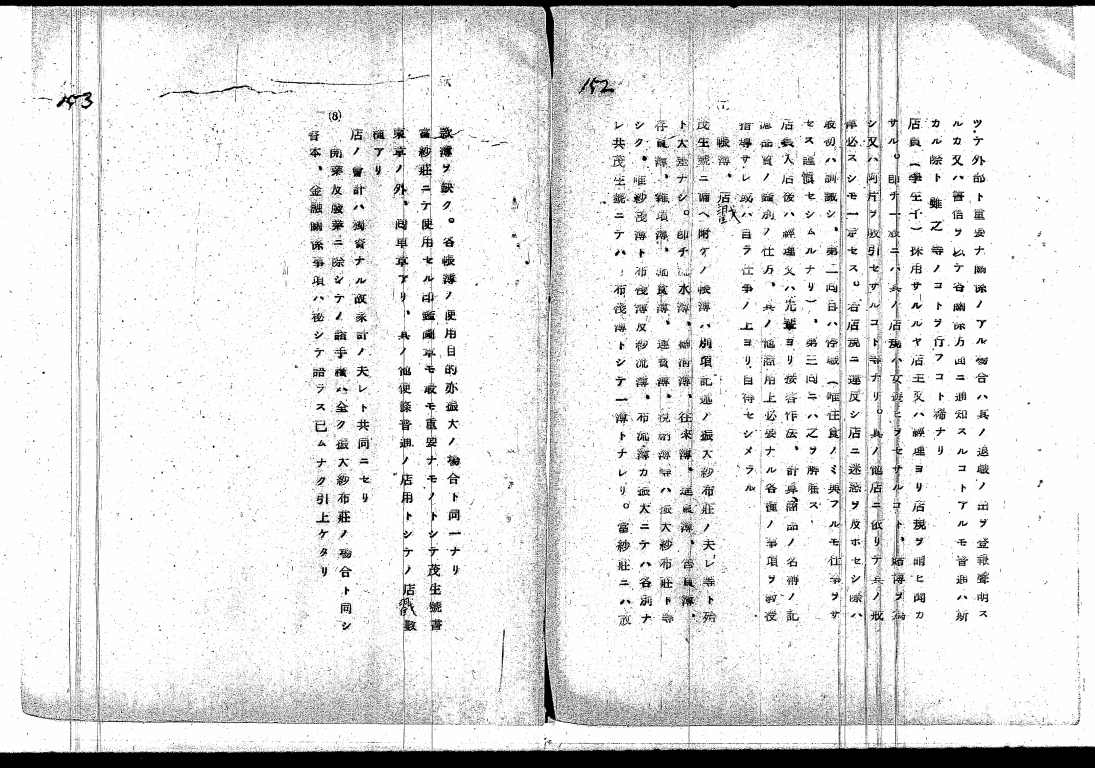 152
ツテ外部ト重要ナ關係ノアル場合ハ其ノ退職ノ由ヲ登報聲明ス
ルカ又ハ書信ヲ以テ各關係方面ニ通知スルコトアルモ普通ハ斯
カル際ト雖之等ノコトヲ行フコト稀ナリ
店員(學生于)採用サルルヤ店主又ハ經理ヨリ店規ヲ 聞カ
サル。即チ一般ニハ其ノ店規ハ女遊ヒヲセサルコト、賭博ヲ為
シ又ハ阿片ヲ吸引セサルコト等ナリ。其ノ他店ニ依リテ其ノ規
律必スシモ一定セス。若店規ニ違反シ店ニ迷惑ヲ及ホセシ際ハ
最初ハ訓誡シ、第二回目ハ停職(唯住食ノミ與フルモ仕事ヲサ
セス謹慎セシムルナリ)、第三回ニハ之ヲ解雇ス
店員入店後ハ經理又ハ先輩ヨリ接客作法、計算、商品ノ名稱ノ記
品質ノ鑑別ノ仕方、其ノ他商用上必要ナル各種ノ事項ヲ教授
指導サレ或ハ自ラ仕事ノ上ヨリ自得セシメラル
帳簿、店戳
茂生號ニ備ヘ附ケノ帳簿ハ別項記述ノ振大紗布莊ノ夫レ等ト殆
ト大差ナシ。即チ流水簿、 簿、往來簿、進貨簿、售貨簿、
存貨簿、雜項簿、 食簿、運費簿、 簿等ハ振大紗布莊ト等
シク、唯紗茂簿ト布茂簿及紗流簿、布流簿カ振大ニテハ各別ナ
レ共茂生號ニテハ、布茂簿トシテ一簿トナレリ。當紗莊ニハ
153
簿ヲ缺ク。各帳簿ノ使用目的亦振大ノ場合ト同一ナリ
當紗莊ニテ使用セル印鑑圖章モ最モ重要ナモノトシテ茂生號書
柬章ノ外、回單章アリ、其ノ他便條普通ノ店用トシテノ店戳數
種アリ
店ノ會計ハ獨資ナル故家計ノ夫レト共同ニセリ
(8) 開業及廢業ニ際シテノ諸手續ハ全ク振大紗布莊ノ場合ト同シ
資本、金融關係事項ハ後シテ語ラス已ムナク引上ケタリ